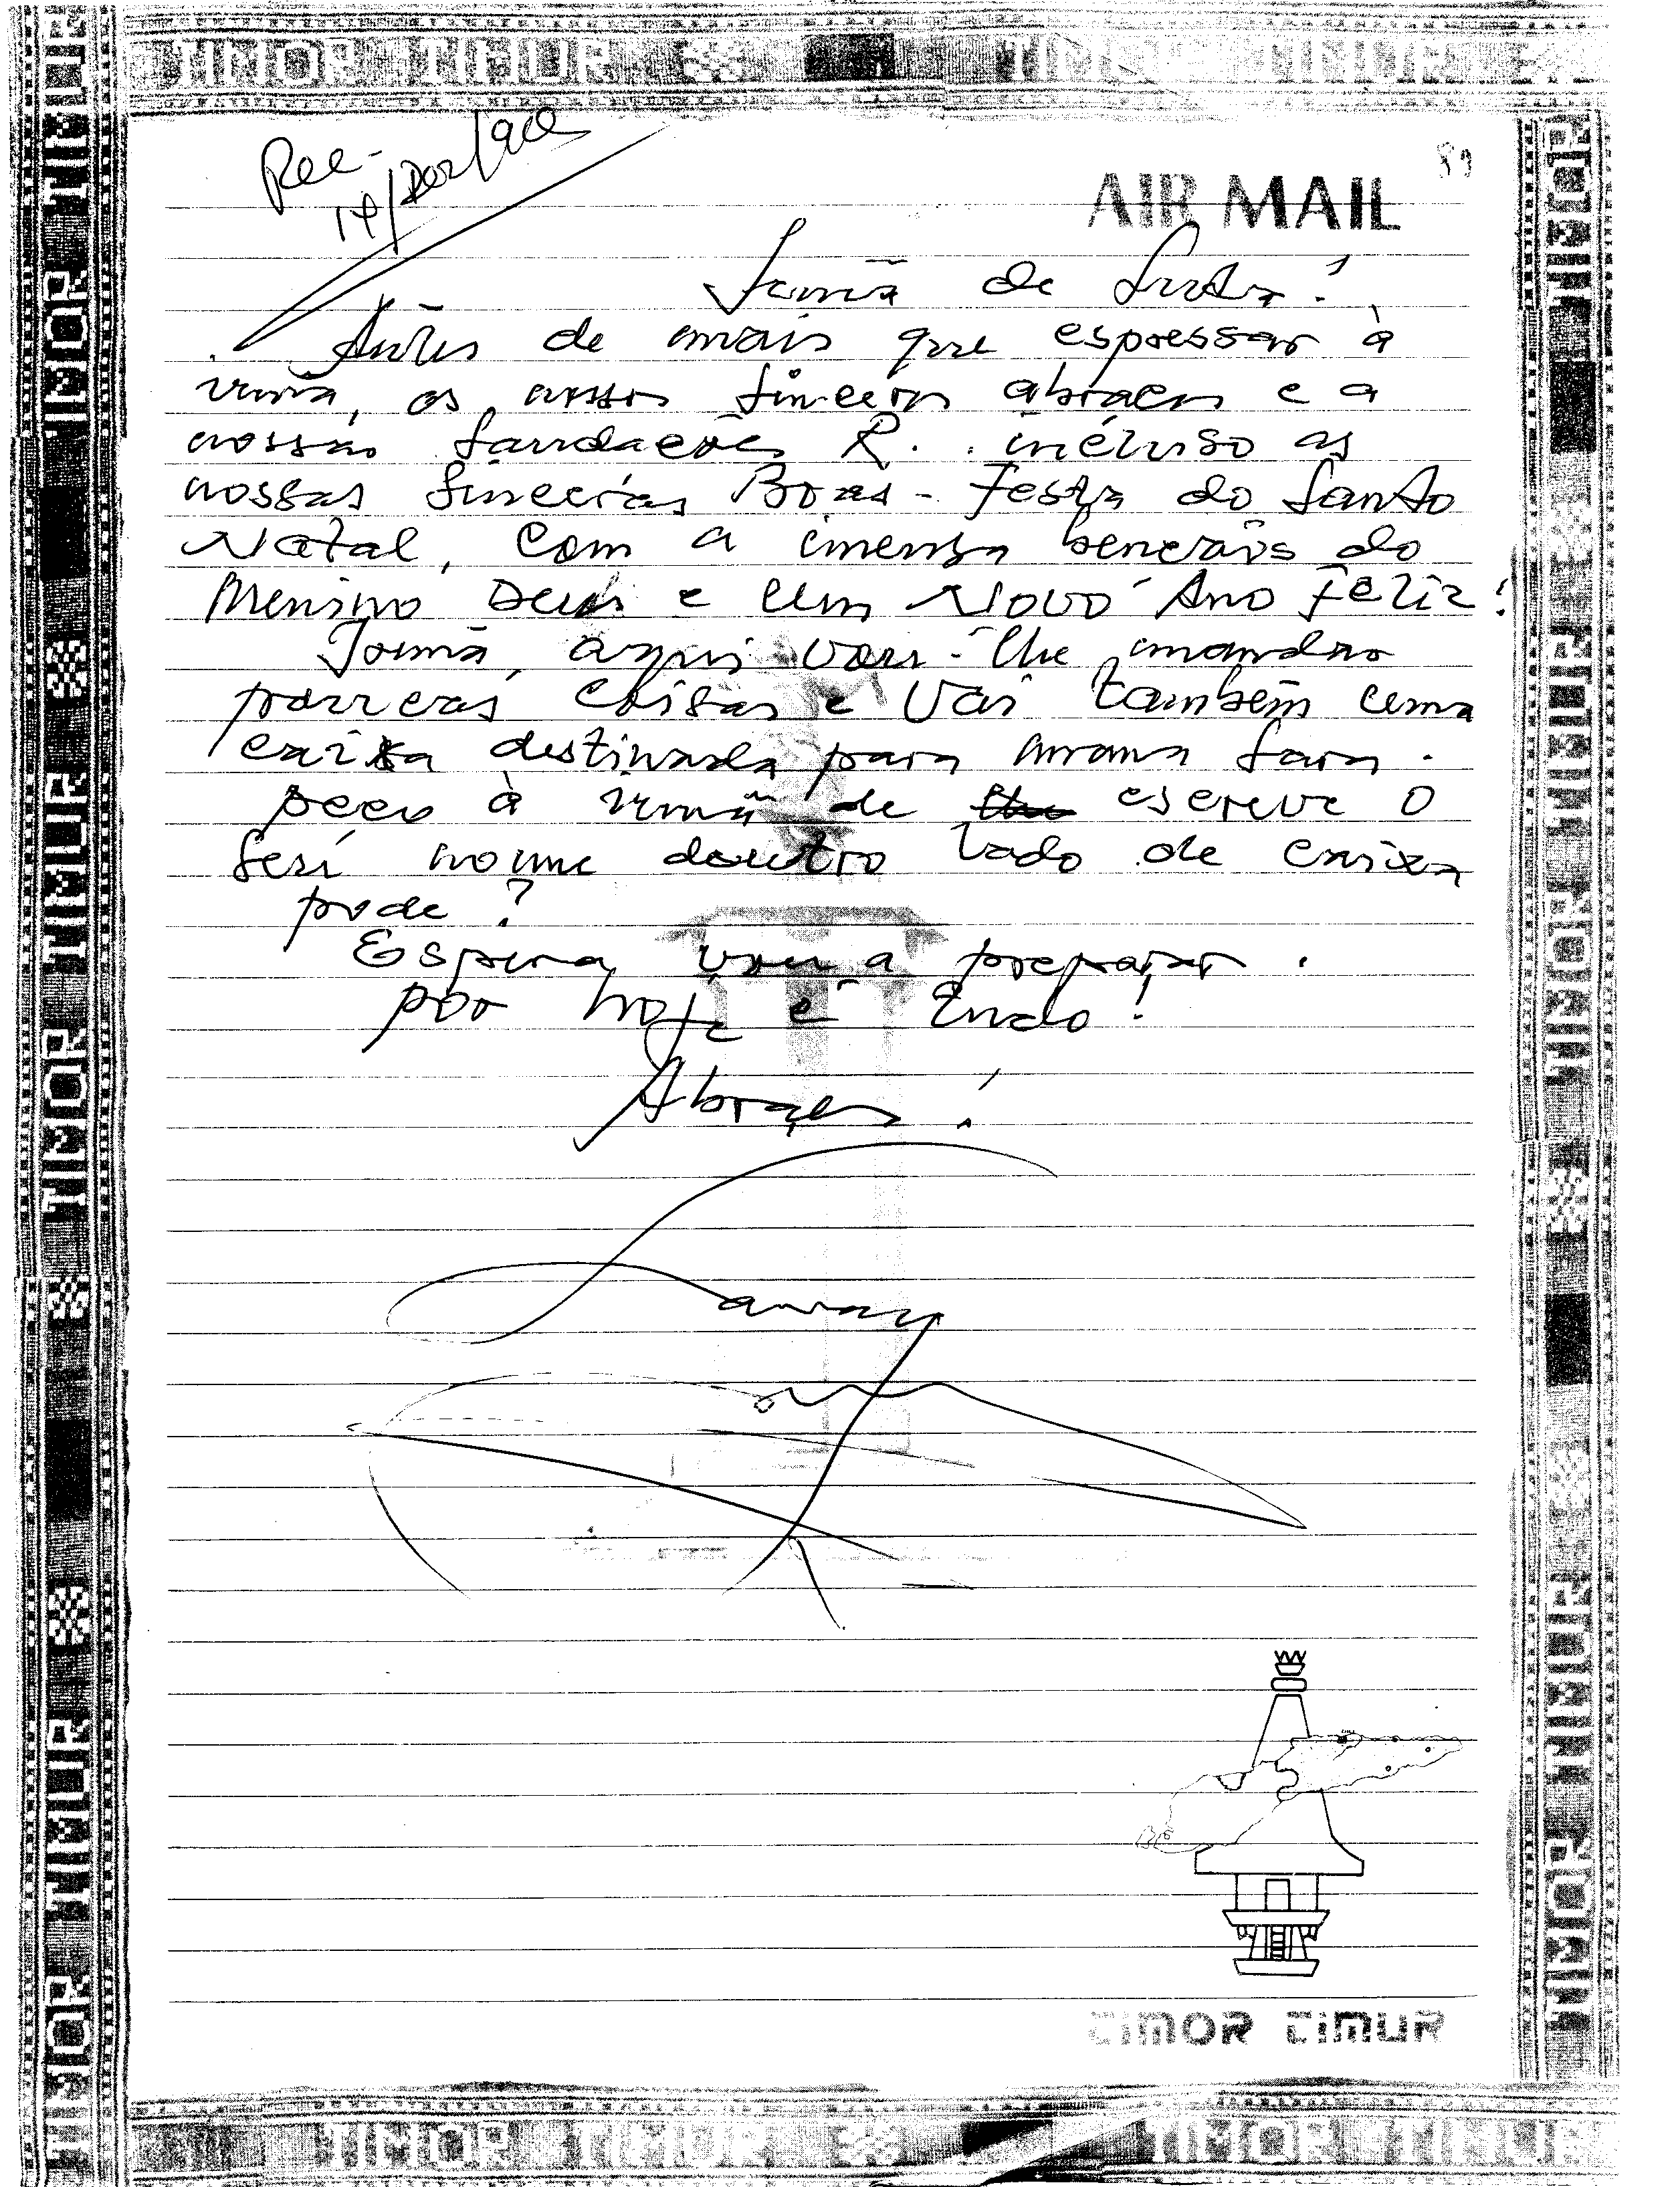 TIMOR TIMUR
Rec-
AIR MAIL
89
Irmã de Luta!
Antes de mais que espressar à
irmã, os nossos sinceros abraços e a
nossas saudações R. incluso as
nossas sinceras Boas-Festa do Santo
Natal, com a imensa bençãos do
Menino Deus e um Novo Ano Feliz!
Irmã, aqui vou-lhe mandar
e vai também uma
caixa destinada para mana Sara.
peço à irmã de escreve o
seu nome doutro lado de caixa
pode?
vou a preparar.
por hoje é tudo!
Abraços!
TIMOR TIMUR
TIMOR TIMUR
TIMOR TIMUR